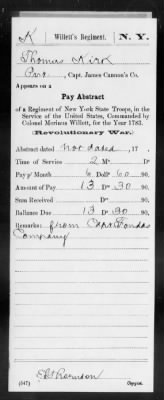 K Willett's Regiment. N. Y.
Thomas Kirk
Pvt., Capt. James Cannon's Co.
Appears on a
Pay Abstract
of a Regiment of New York State Troops, in the
Service of the United States, Commanded by
Colonel Marinus Willett, for the Year 1783.
Revolutionary War.
Abstract dated not dated, 17 .
Time of Service 2 Ms Ds
Pay ⅌ Month 6 Dolls 60 90.
Amount of Pay 13 Ds 30 90.
Sum Received Ds 90.
Ballance Due 13 Ds 30 90.
Remarks: from Capt
Company
(547) Copyist.